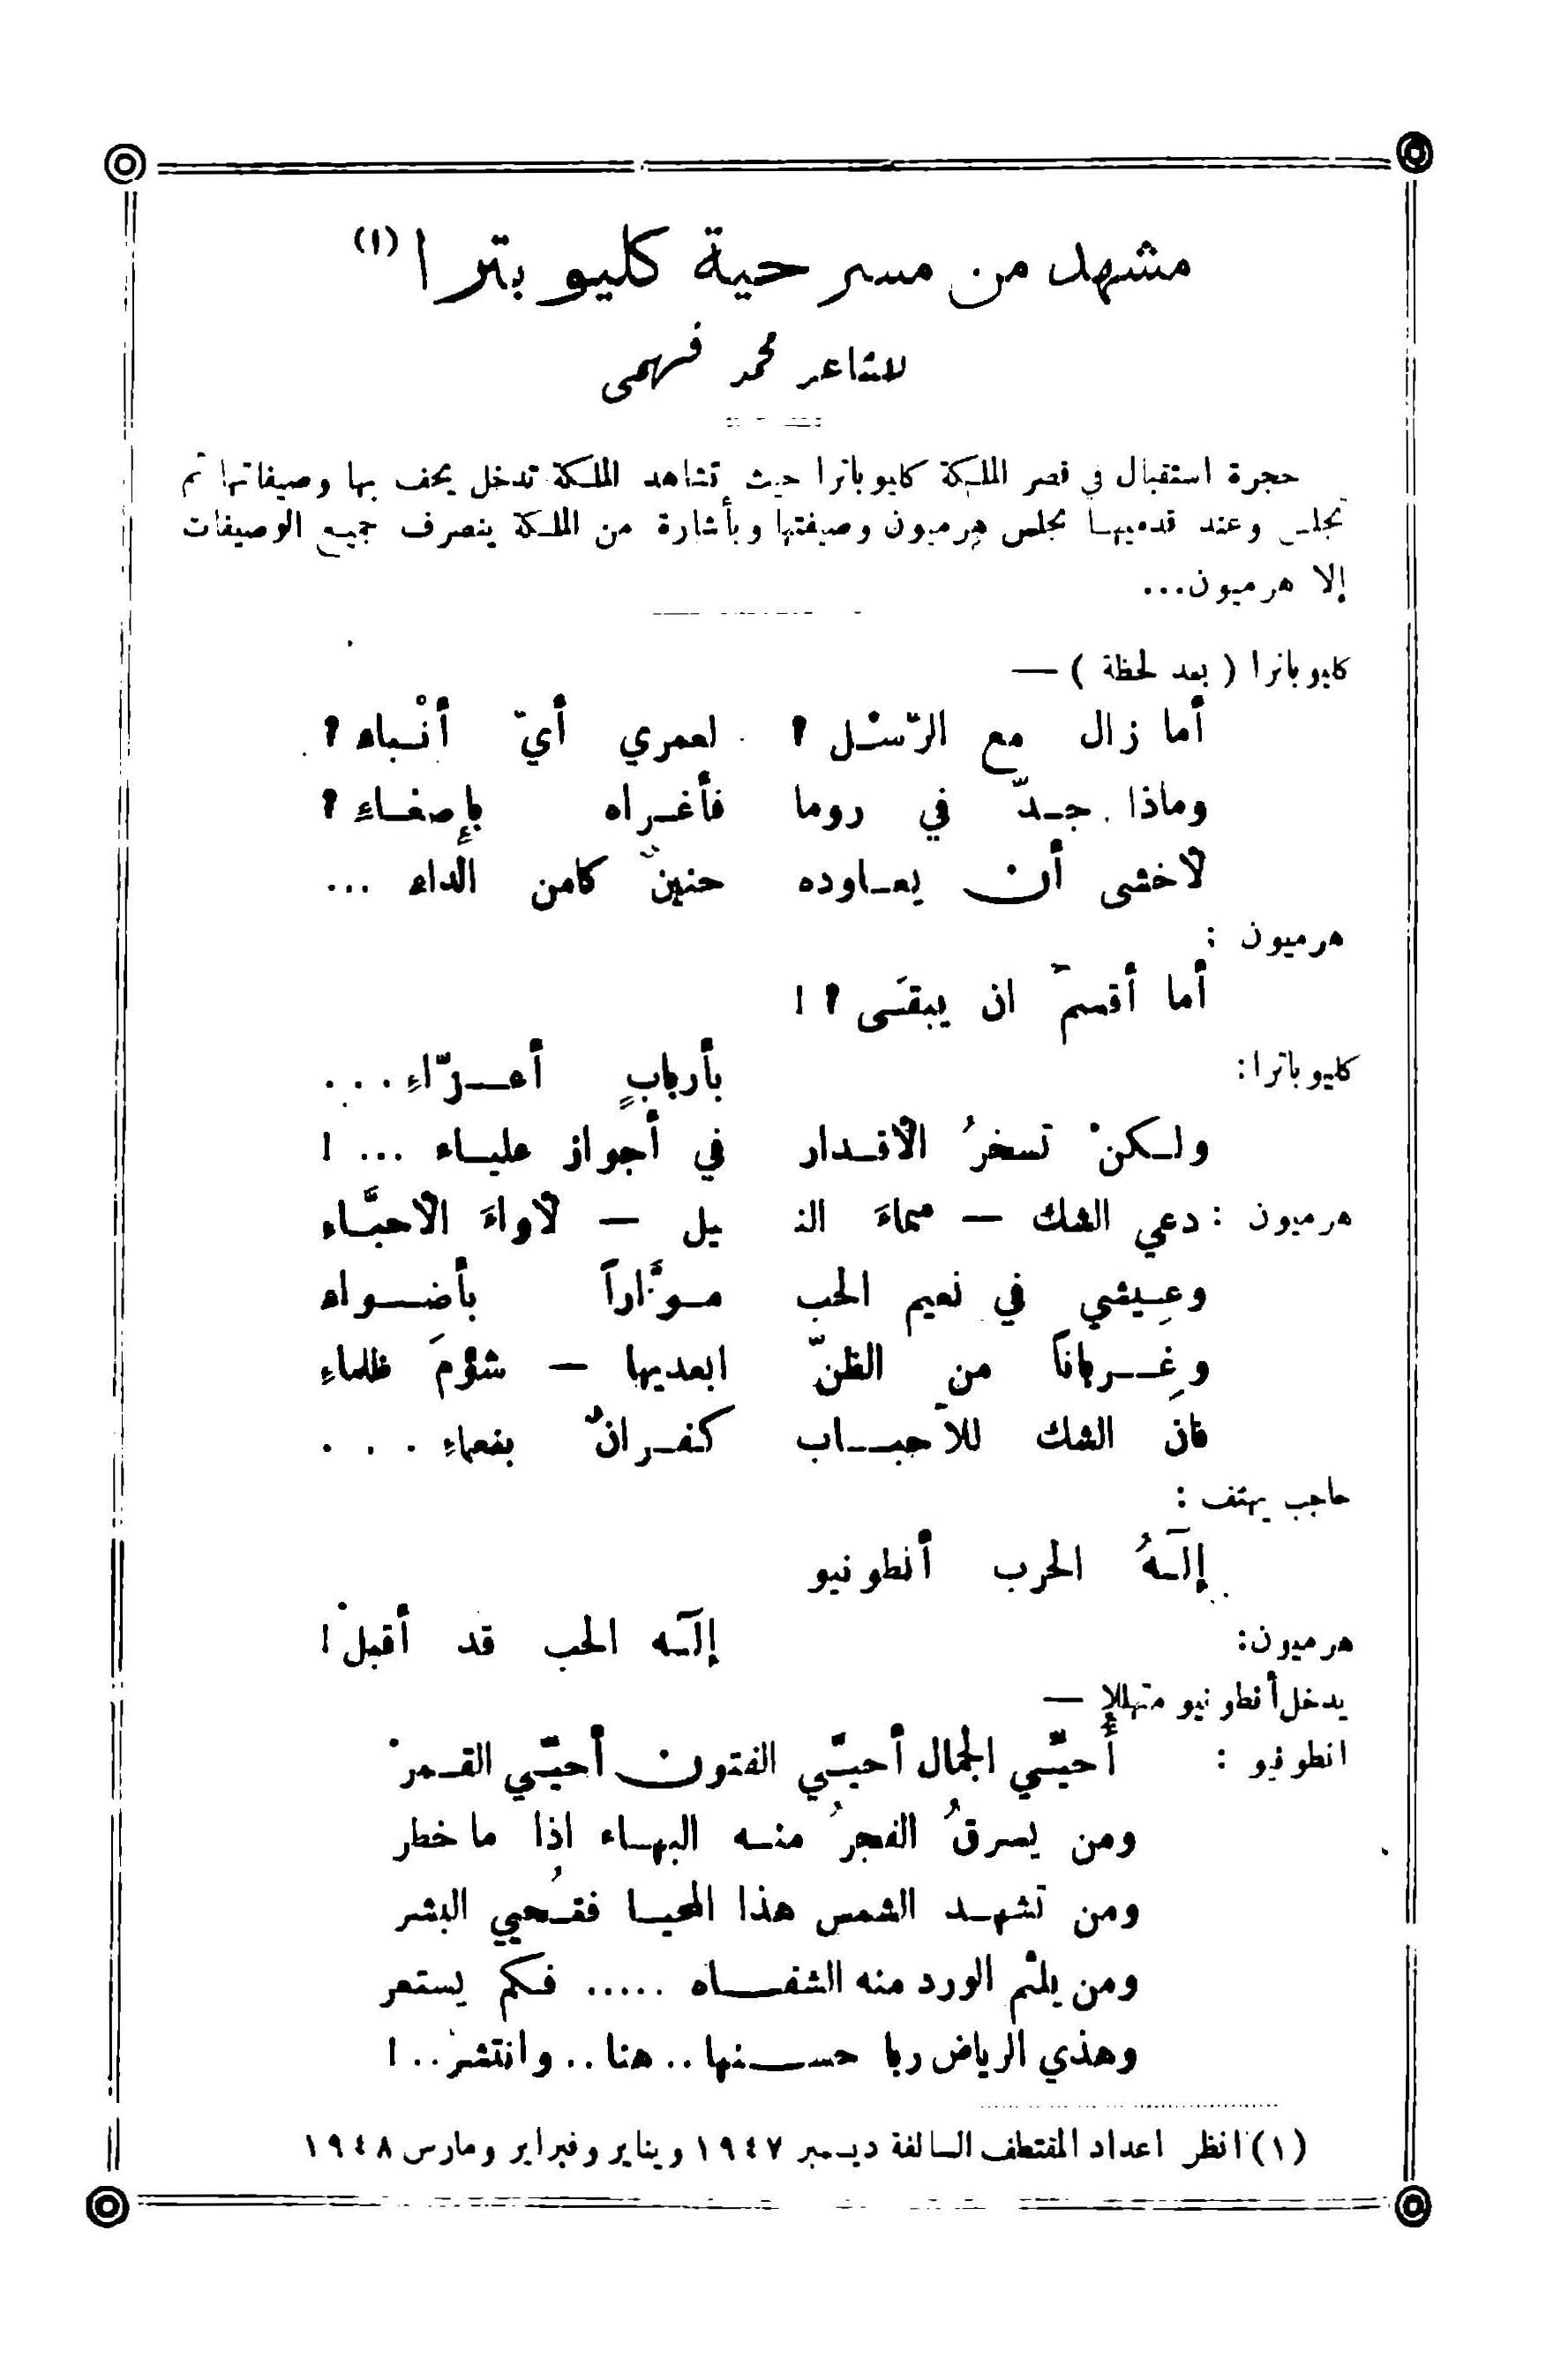 مشهد من مسرحية كليوبترا (١)
للشاعر محمد فهمى
حجرة استقبال في قصر الملكة كليوباترا حيث تشاهد الملكة تدخل يحف بها وصيفاتها ثم
تجلس وعند قدميها تجلس هرميون وصيفتها وبأشارة من الملكة ينصرف جميع الوصيفات
إلا هرميون...
كليوباترا ( بعد لحظة ) —
أما زال مع الرّسْل ؟ لعمري أيّ أنْباء ؟
وماذا جدّ في روما فأغراه بإصغاءِ ؟
لاخشى أن يعاوده حنينٌ كامن الداء ...
هرميون :
أما أقسمَ ان يبقَى ؟ !
كليوباترا:
بأربابٍ أعزّاءِ ...
ولكنْ تسخرُ الاقدار في أجواز علياء ... !
هرميون : دعي الشك — سماءَ النـ يل — لاواءَ الاحبَّاء
وعِيشي في نعيم الحب موَّاراً بأضواء
وغِرباناً من الظنّ ابعديها — شؤمَ ظلماءِ
فان الشك للأحباب كفرانٌ بنعماءِ . . .
حاجب يهتف :
إلَهُ الحرب أنطونيو
هرميون:
إلَه الحب قد أقبلْ !
يدخل أنطونيو متهللا —
انطونيو : أُحيّي الجمال أحيّي الفتون أحيّي القمرْ
ومن يسرقُ الفجرُ منه البهاء اذا ما خطر
ومن تشهد الشمس هذا المحيا فتُحيي البشر
ومن يلثم الورد منه الشفاه ..... فكم يستعر
وهذي الرياض ربا حسنها .. هنا .. وانتشرْ .. !
(١) انظر اعداد المقتطف السالفة ديسمبر ١٩٤٧ ويناير وفبراير ومارس ١٩٤٨